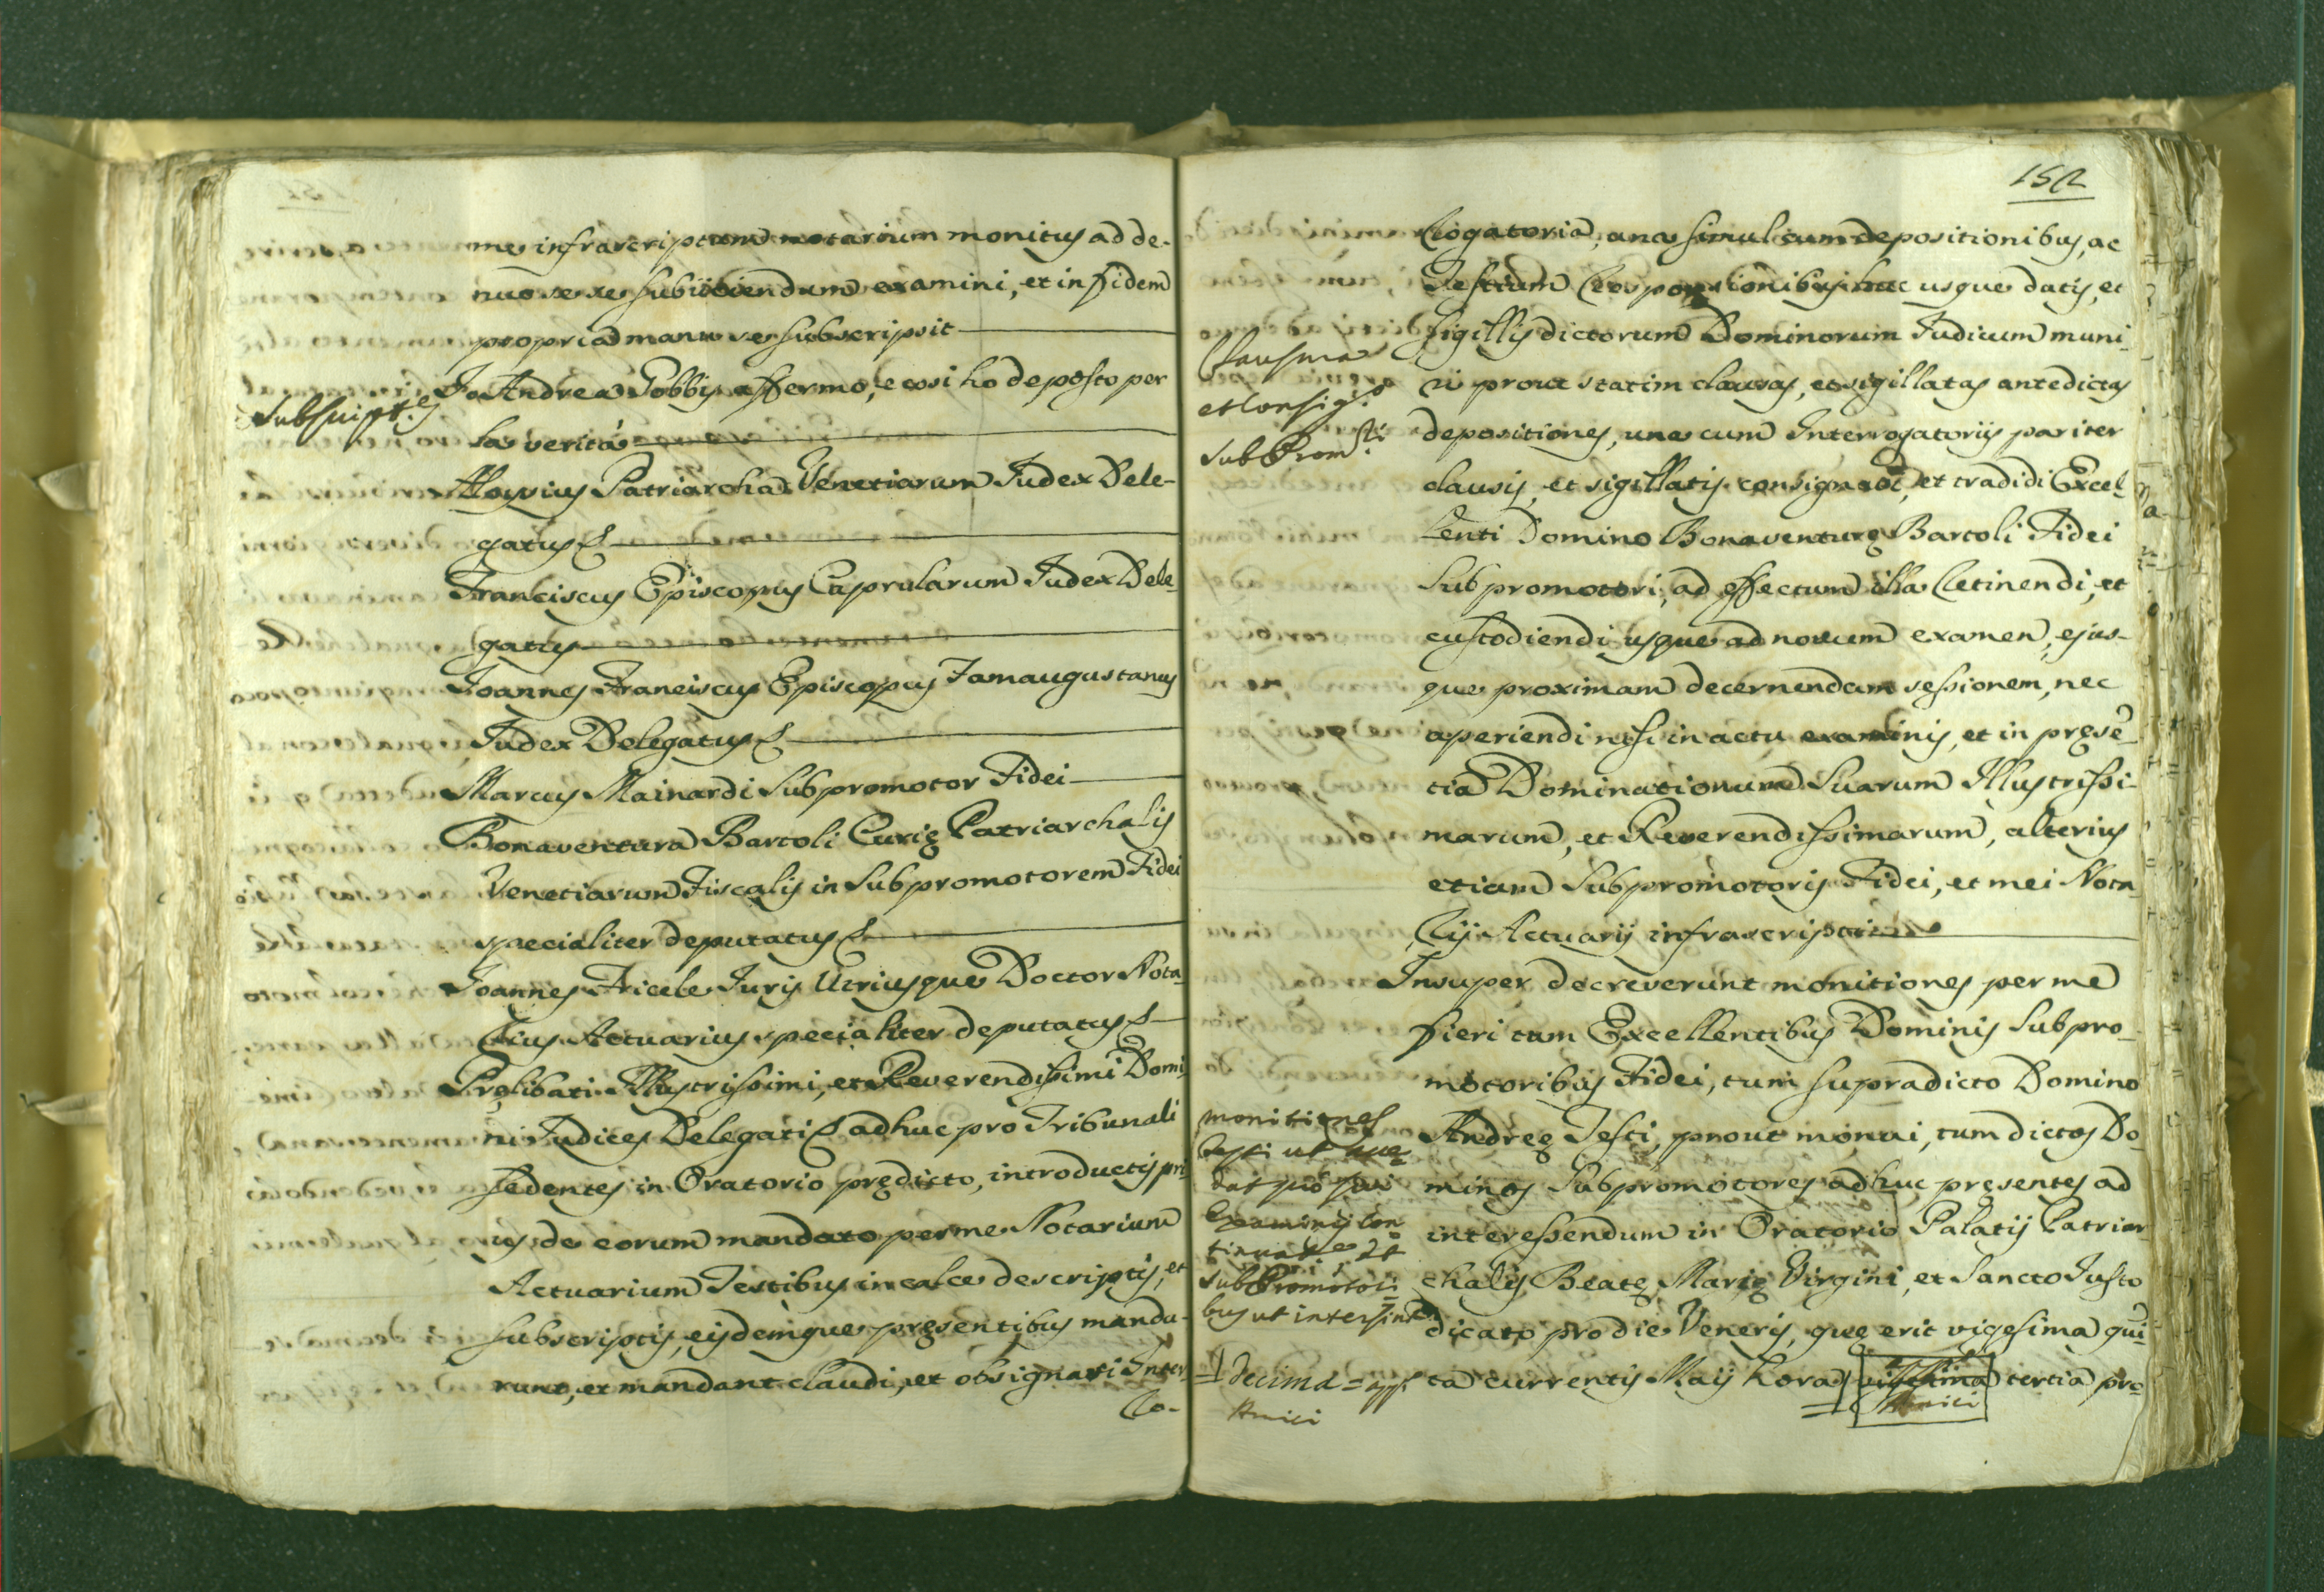 me infrascriptum notarium monitus ad de-
nuo se se subijciendum examini, et in fidem
propria manu se subscripsit
Subscript.s
Io Andrea Gobbis affermo, e cosi ho deposto per
la verità
Aloysius Patriarcha Venetiarum Iudex Dele-
gatus
Franciscus Episcopus Caprularum Iudex Dele-
gatus
Joannes Franciscus Episcopus Famaugustanus
Judex Delegatus
Marcus Mainardi Subpromotor Fidei
Bonaventura Bartoli Curię Patriarchalis
Venetiarum Fiscalis in Subpromotorem Fidei
specialiter deputatus
Joannes Fricele Juris Utriusque Doctor Nota-
rius Actuarius specialiter deputatus
Pręlibati Illustrissimi, et Reverendissimi Domi-
ni Judices Delegati adhuc pro Tribunali
sedentes in Oratorio prędicto, introductis pri-
us de eorum mandato per me Notarium
Actuarium Testibus in calce descriptis, et
subscriptis, eisdemque pręsentibus manda-
runt, et mandant claudi, et obsignari Inter-
ro-
152
rogatoria, una simul cum depositionibus, ac
Testium responsionibus huc usque datis, et
sigillis dictorum Dominorum Judicum muni-
ri prout statim clausas, et sigillatas antedictas
depositiones, una cum Interrogatoriis pariter
clausis, et sigillatis consignavi, et tradidi Excel-
lenti Domino Bonaventurę Bartoli Fidei
Subpromotori, ad effectum illa retinendi, et
custodiendi usque ad novum examen, ejus-
que proximam decernendam sessionem, nec
aperiendi nisi in actu examinis, et in pręsen-
tia Dominationum Suarum Illustrissi-
marum, et Reverendissimarum, alterius
etiam Subpromotoris Fidei, et mei Nota-
rij Actuarij infrascripti
Clausura
et consig.o
SubProm.ri
Insuper decreverunt monitiones per me
fieri tam Excellentibus Dominis Subpro-
motoribus Fidei, tum supradicto Domino
Andreę Testi, prout monui, tum dictos Do-
minos Subpromotores adhuc pręsentes ad
interessendum in Oratorio Palatij Patriar-
chalis Beatę Marię Virgini, et Sancto Justo
dicato pro die Veneris, quę erit vigesima quin-
ta currentis Maij hora vigesima tertia pro
Amici
monitiones
Testi ut
dat pro
Examinis con
tinuat.e et
SubPromotori
bus ut intersint
decima =
Amici